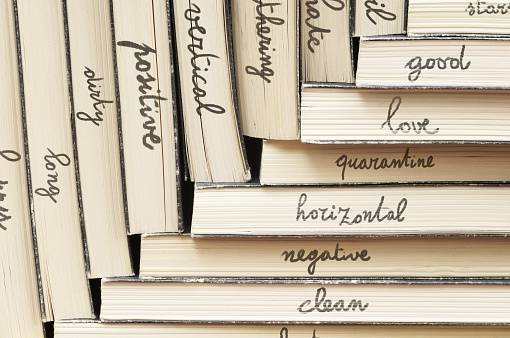 long
dirty
positive
vertical
thering
hate
il
start
good
love
quarantine
horizontal
negative
clean